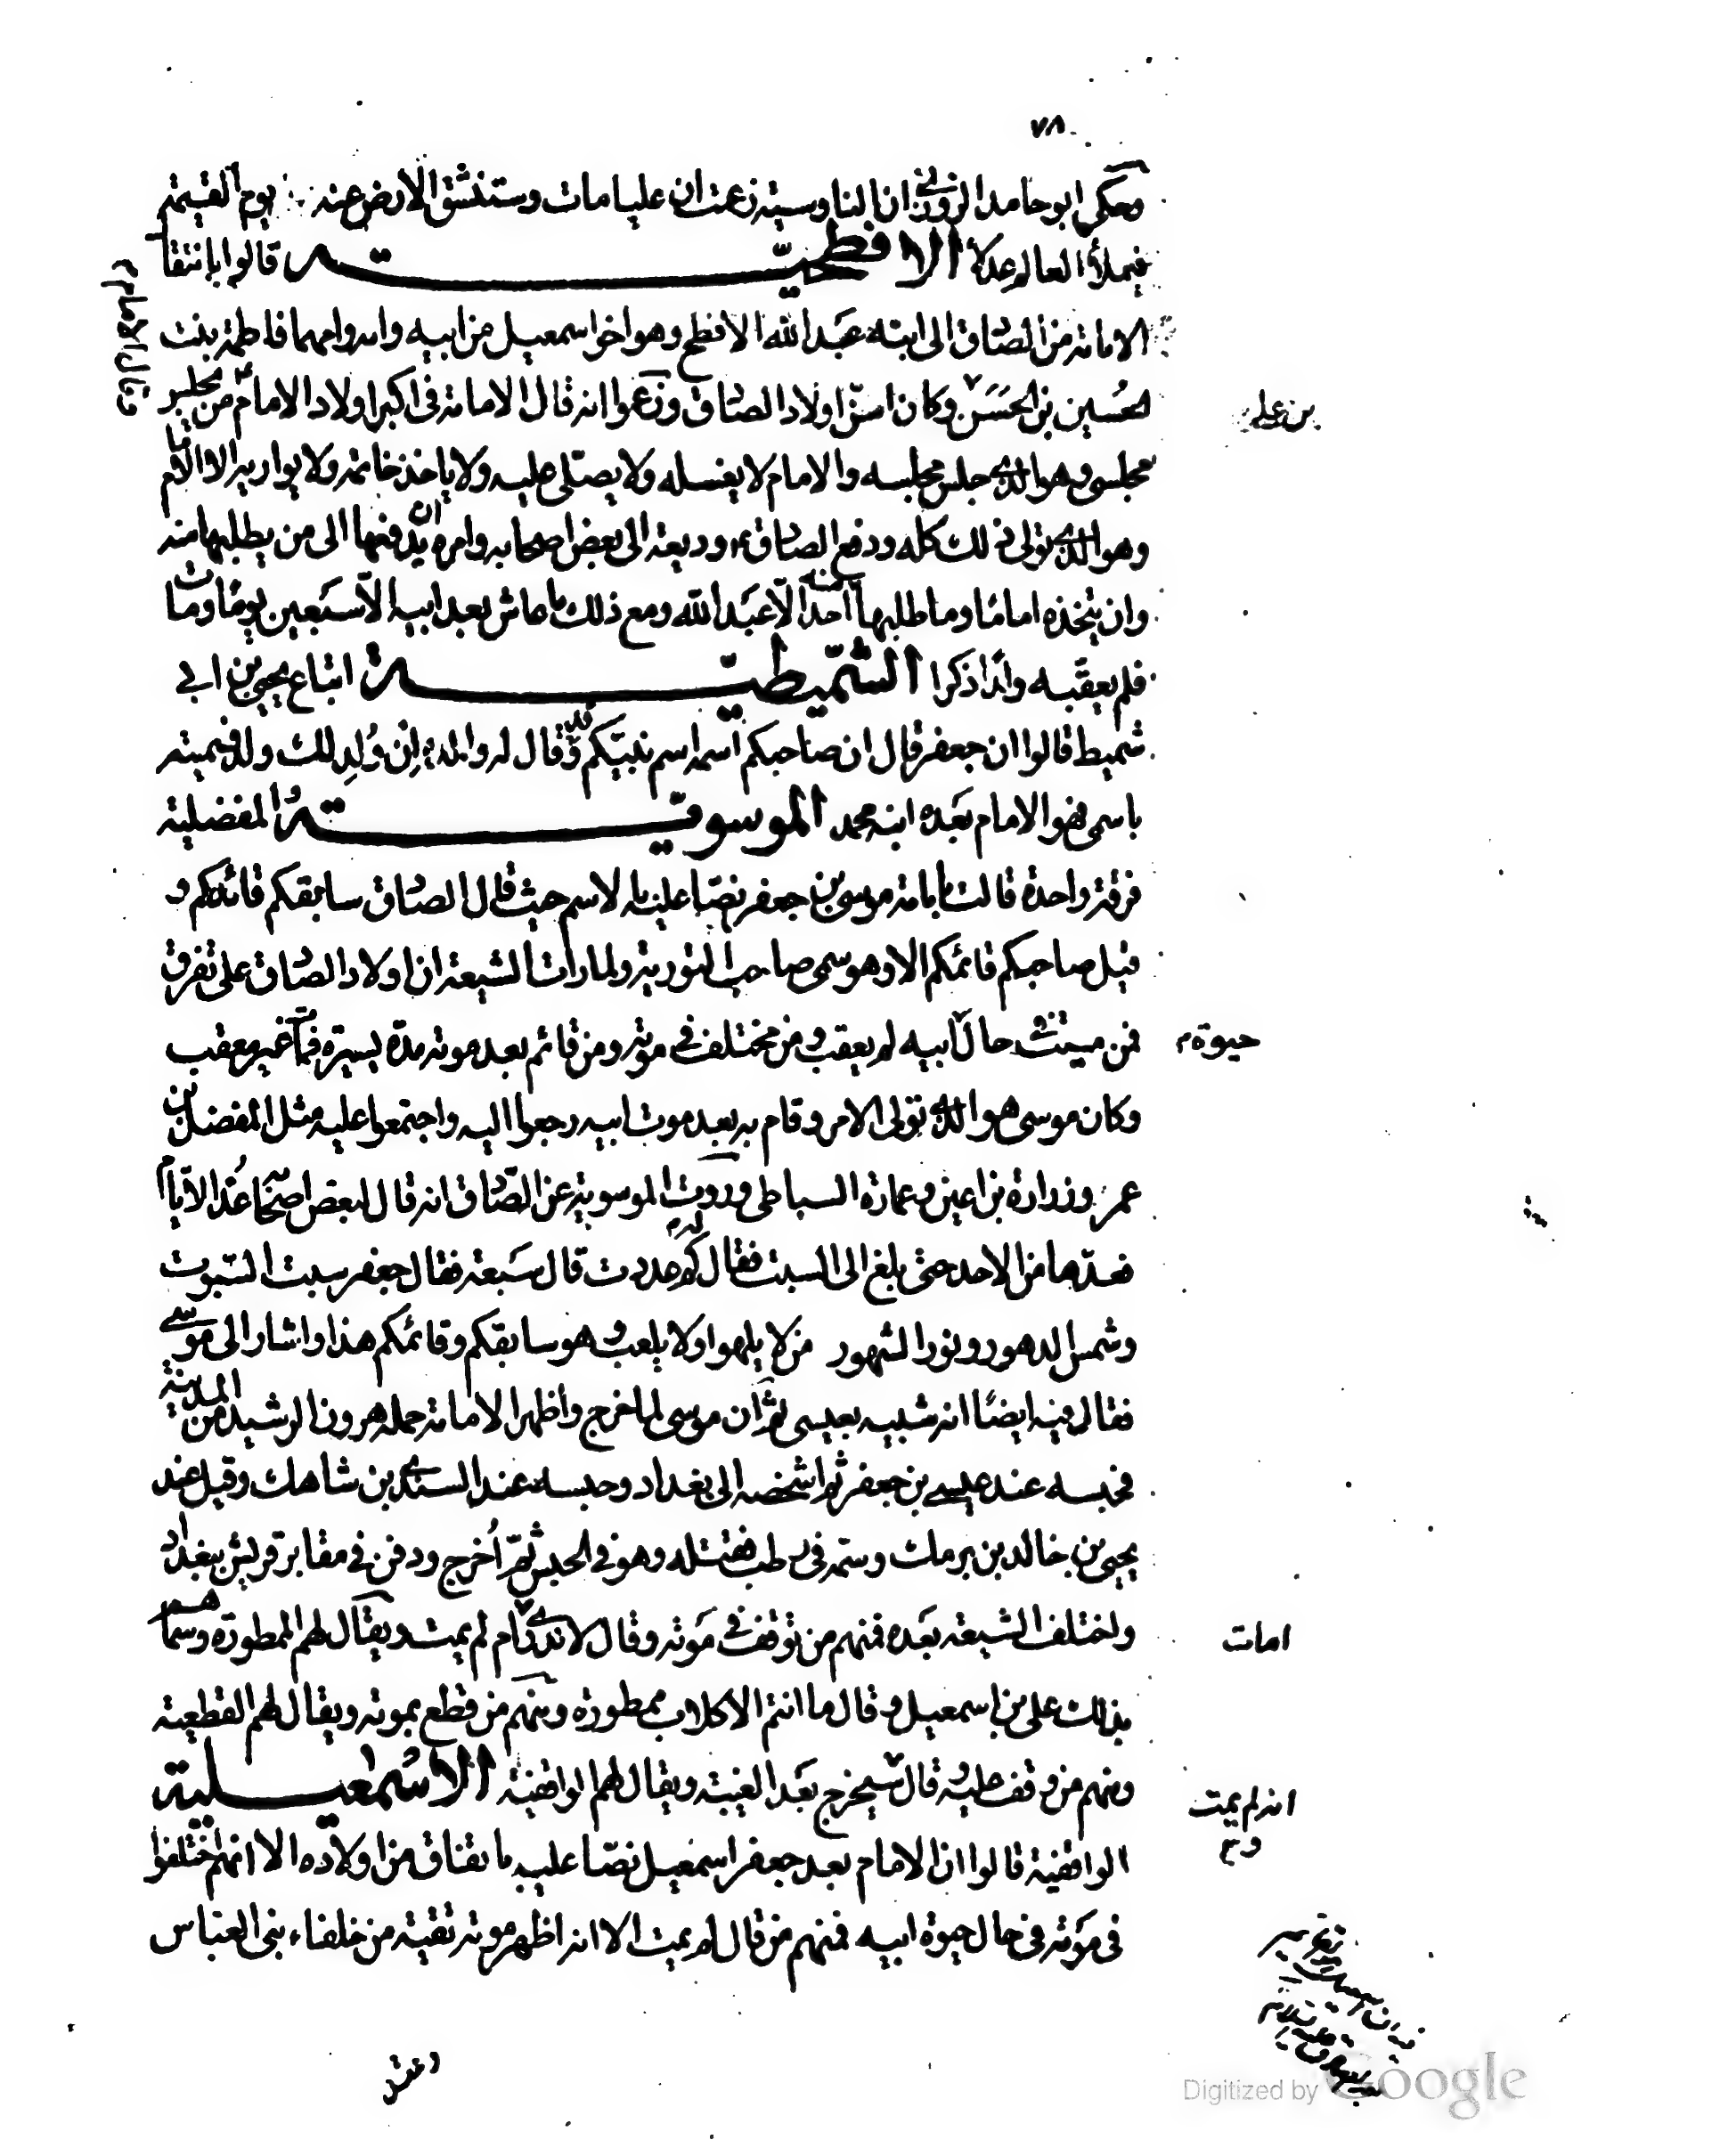 ٧٨
وحكى ابو حامد الزوزنى ان الناوسية زعمت ان عليا مات وستنشق الارض عنه يوم القيمة
فيملأ العالم عدلا الافطحيّة قالوا بانتقا
الامامة من الصادق الى ابنه عبد الله الافطح وهو اخو اسمعيل من ابيه وامه وامهما فاطمة بنت
الحسين بن الحسن وكان اسنّ اولاد الصادق وزعموا انه قال الامامة فى اكبر اولاد الامام من يجلس
بن على
مجلسى وهو الذى جلس مجلسه والامام لا يغسله ولا يصلى عليه ولا ياخذ خاتمه ولا يواريه الا الامام
وهو الذى تولى ذلك كله ودفع الصادق وديعة الى بعض اصحابه وامره ان يدفعها الى من يطلبها منه
وان يتخذه اماما وما طلبها منه احد الّا عبد الله ومع ذلك ما عاش بعد ابيه الّا سبعين يوما ومات
فلم يعقبه ولدا ذكرا الشّميطيّة اتباع يحيى بن ابى
شميط قالوا ان جعفر قال ان صاحبكم اسمه اسم نبيّكم وقد قال له والده ان وُلِد لك ولد فسميته
باسمى فهو الامام بعده ابنه محمد الموسويّة والمفضلية
فرقة واحدة قالت بامامة موسى بن جعفر نصّا عليه بالاسم حيث قال الصادق سابعكم قائمكم و
قيل صاحبكم قائمكم الا وهو سمى صاحب التورية ولما رات الشيعة ان اولاد الصادق على تفرق
فمن ميت فى حال ابيه لم يعقب ومن مختلف فى موته ومن قائم بعد موته مدة يسيرة غير معقب
حيوة
وكان موسى هو الذى تولى الامر وقام به بعد موت ابيه رجعوا اليه واجتمعوا عليه مثل المفضل بن
عمر وزرارة بن اعين وعمارة السباطى وروت الموسوية عن الصادق انه قال لبعض اصحابه عُدّ الايام
فعدّها من الاحد حتى بلغ الى السبت فقال له كم عددت قال سبعة فقال جعفر سبت السّبوت
وشمس الدهور ونور الشهور من لا يلهوا ولا يلعب وهو سابعكم وقائمكم هذا واشار الى موسى
فقال فيه ايضا انه شبيه بعيسى ثم ان موسى لما خرج واظهر الامامة حمله هرون الرشيد من المدينة
فحبسه عند عيسى بن جعفر ثم اشخصه الى بغداد وحبسه عند السندى بن شاهك وقيل عند
يحيى بن خالد بن برمك وسمّه فى رطب فقتله وهو فى الحبس ثمّ اُخرج ودفن فى مقابر قريش ببغداد
واختلف الشيعة بعده فمنهم من توقف فى موته وقال لا ندرى ام لم يمت ويقال لهم الممطورة وسماهم
امات
بذلك على بن اسمعيل وقال ما انتم الا كلاب ممطورة ومنهم من قطع بموته ويقال لهم القطعية
ومنهم من وقف عليه وقال سيخرج بعد الغيبة ويقال لهم الواقفية الاسمعيلية
انه لم يمت
الواقفية قالوا ان الامام بعد جعفر اسمعيل نصّا عليه باتفاق من اولاده الا انهم اختلفوا
فى موته فى حال حيوة ابيه فمنهم من قال لم يمت الا انه اظهر موته تقية من خلفاء بنى العباس
Digitized by Google